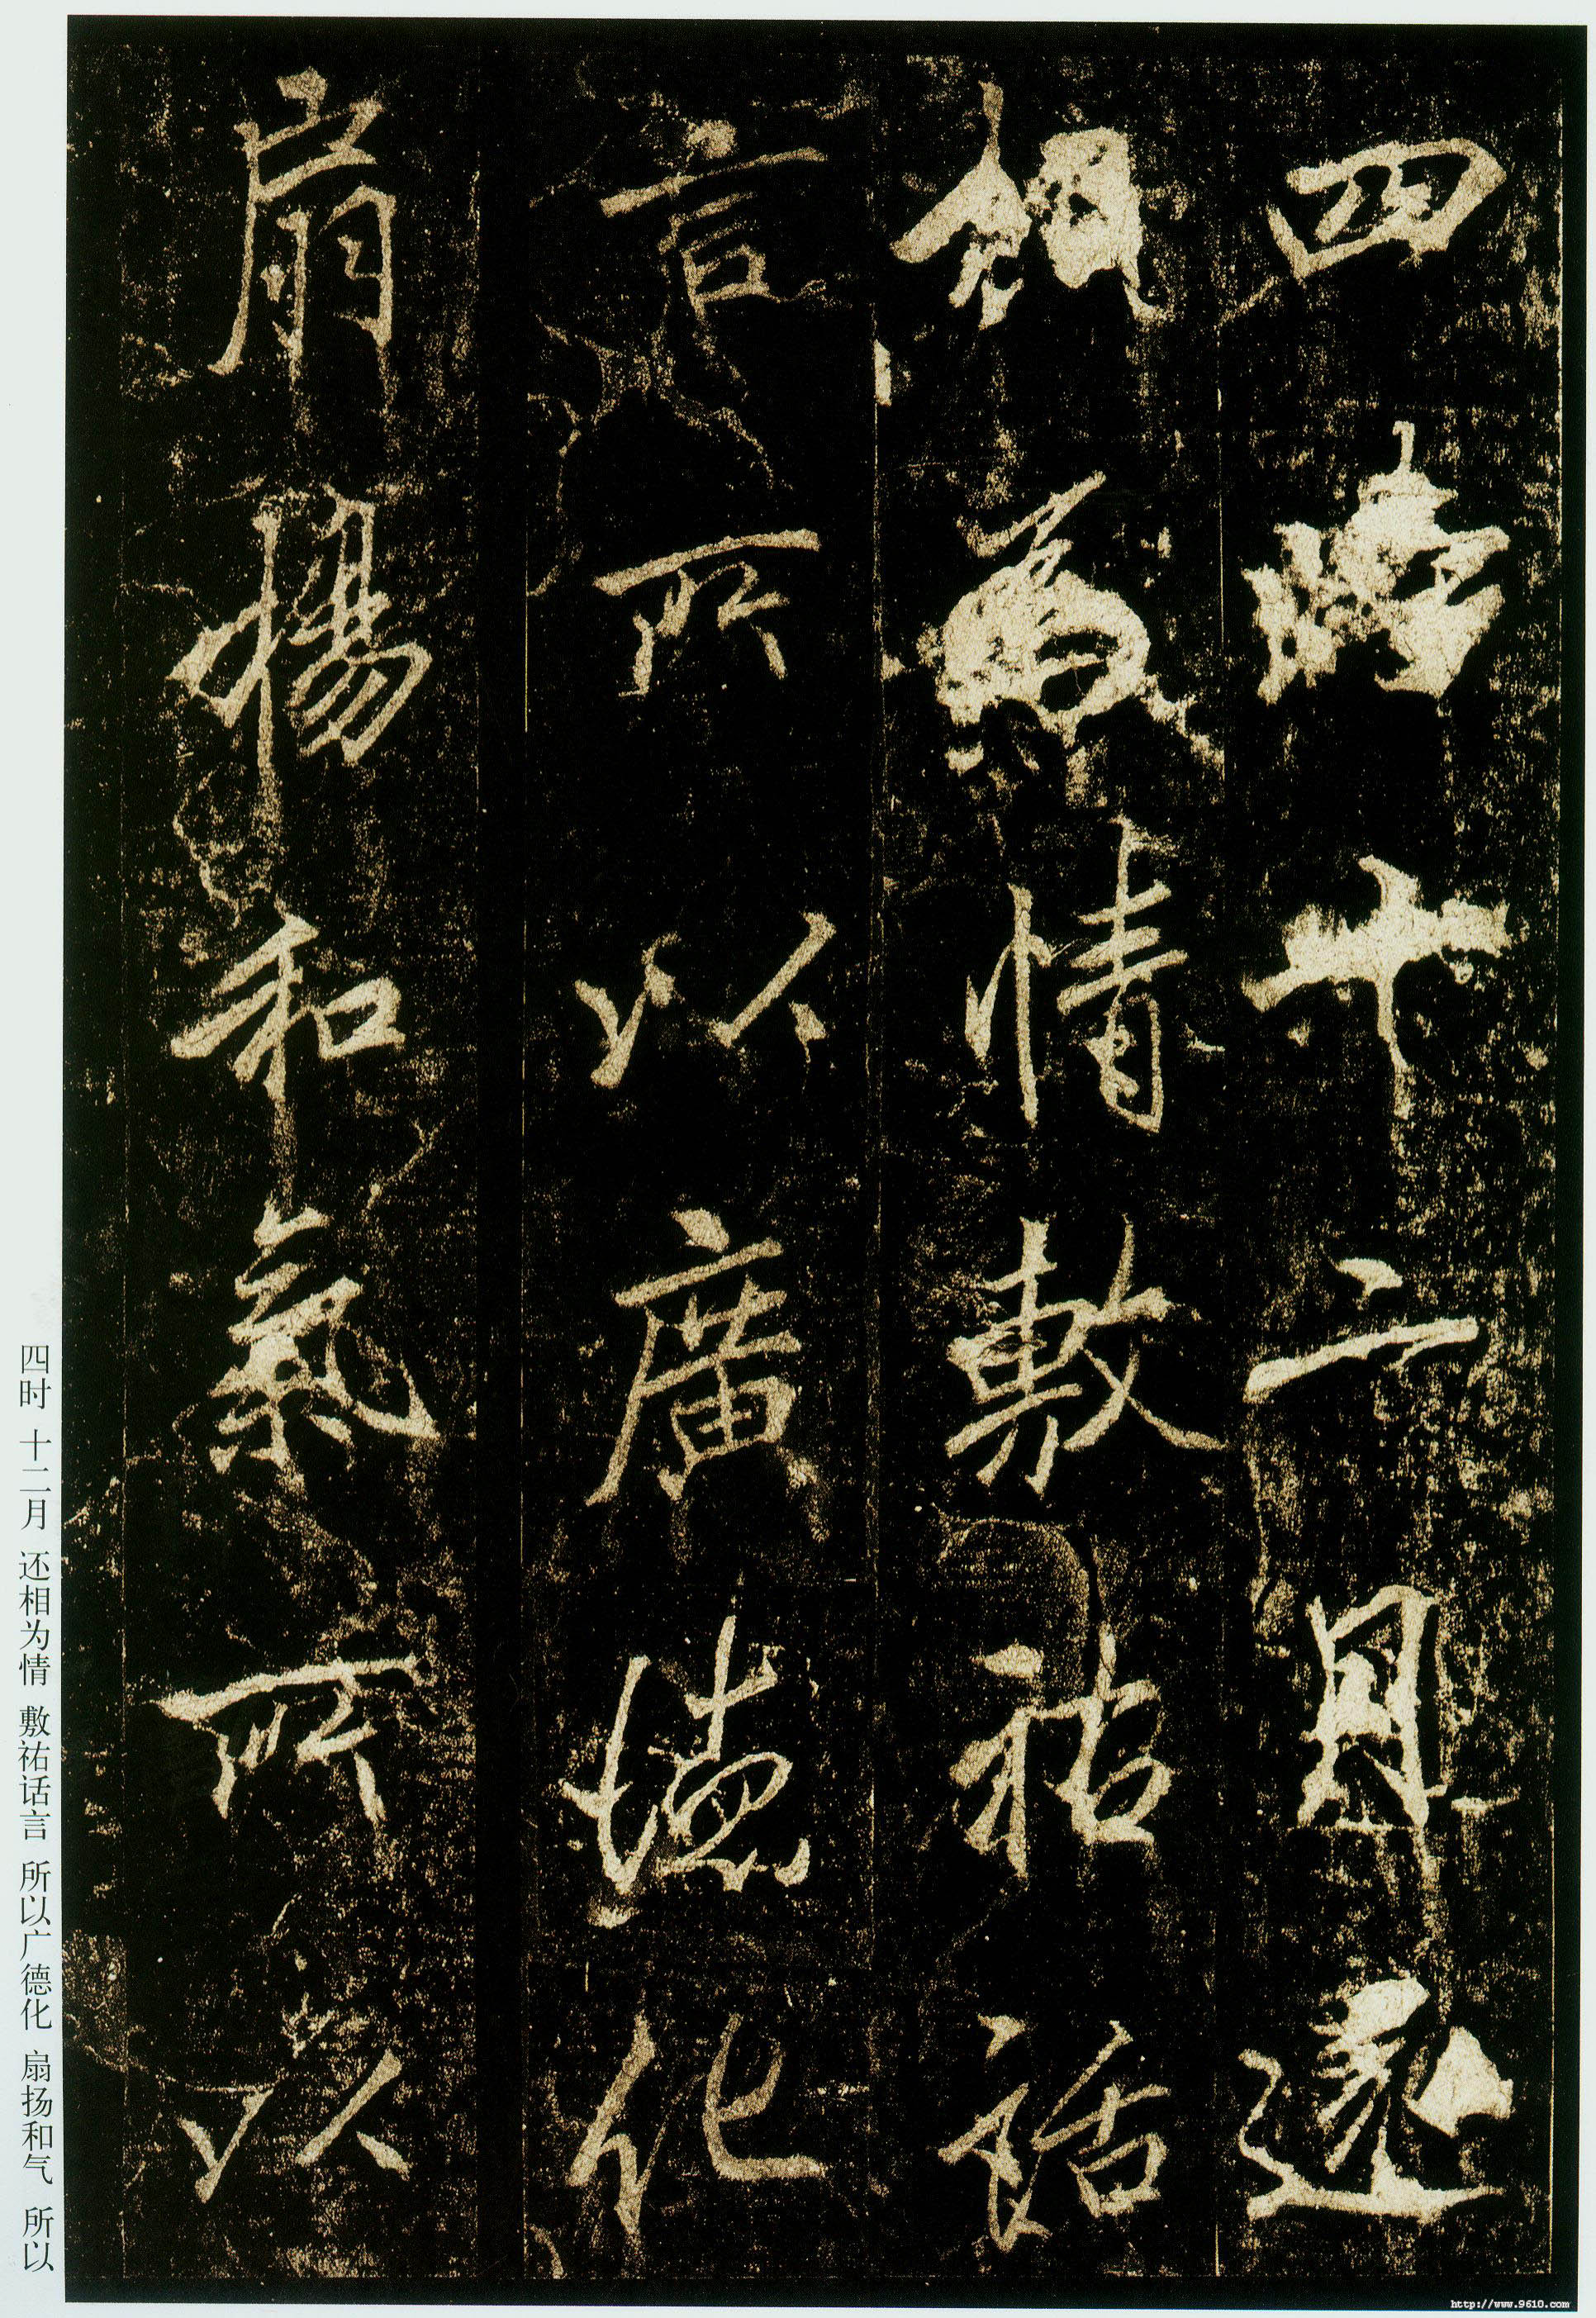 四時十二月還
相為情敷祐話
言所以廣德化
扇揚和氣所以
四时 十二月 还相为情 敷祐话言 所以广德化 扇扬和气 所以
http://www.9610.com